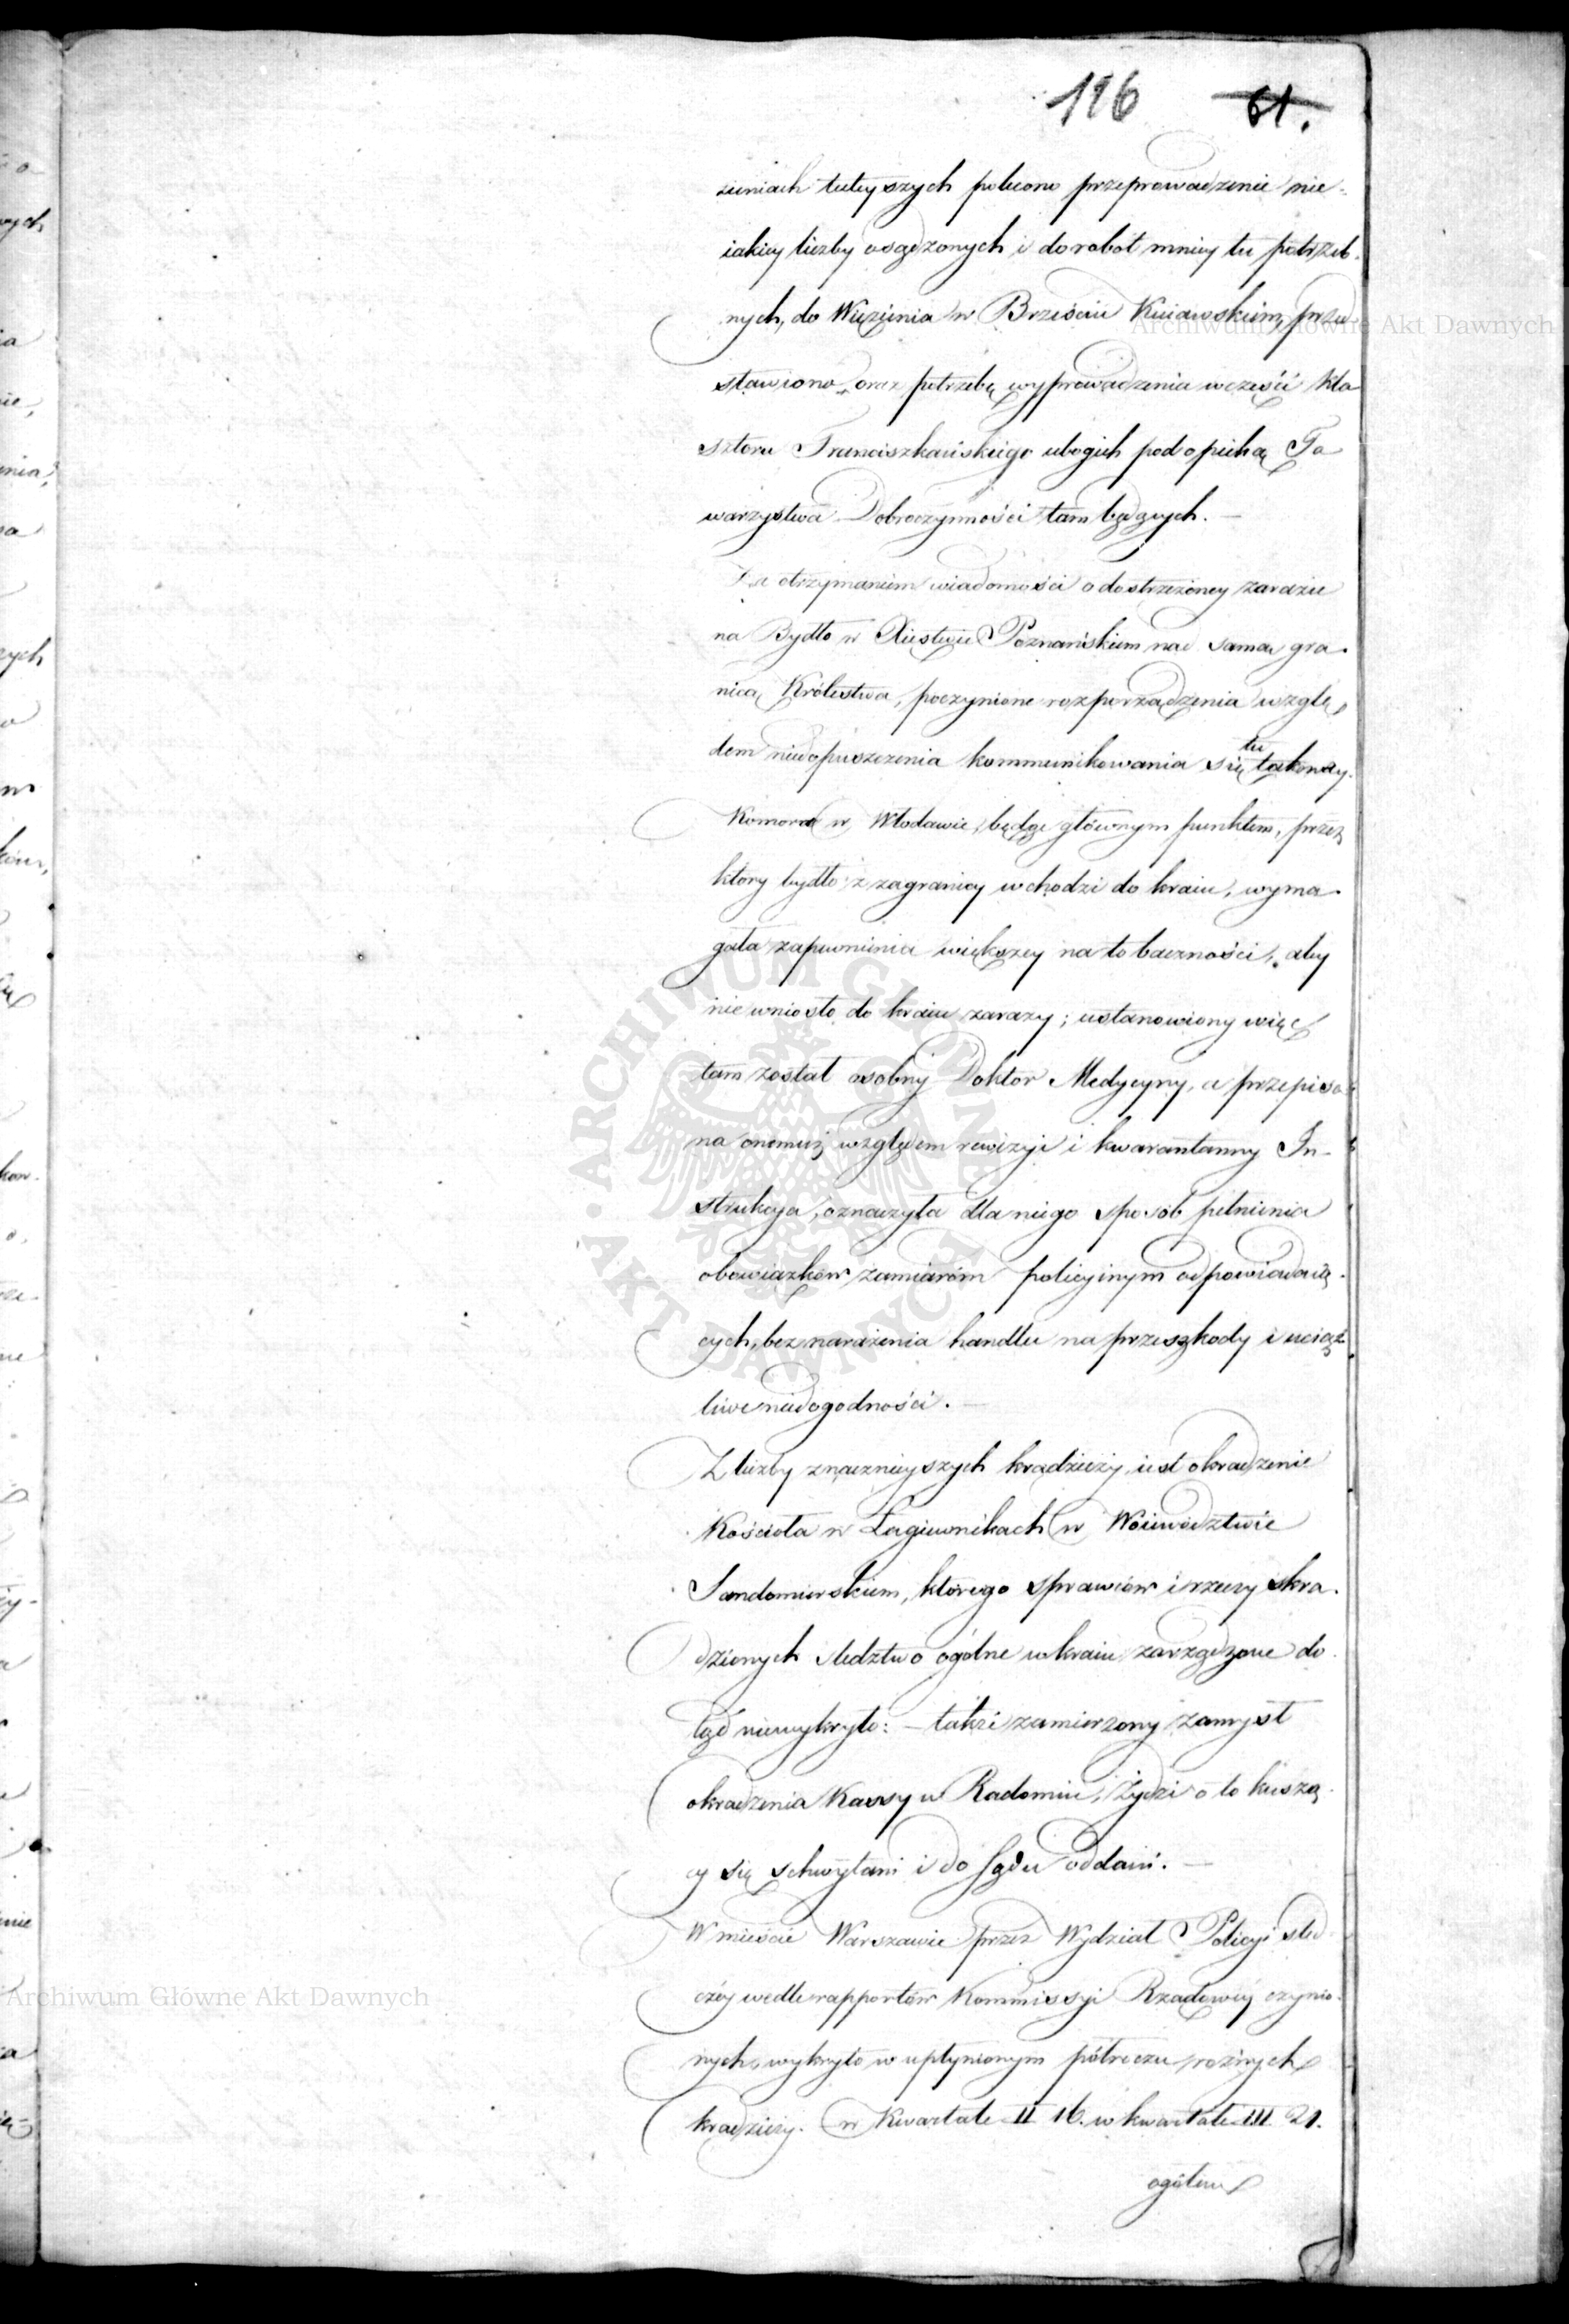 116 61.
zieniach tuteyszych polecono przeprowadzenie nie-
iakiey liczby osądzonych i do robot mniey tu potrzeb-
nych, do Więzienia w Brześciu Kuiawskim, przed
stawiono oraz potrzebę wyprowadzenia w części Kla
sztoru Franciszkańskiego ubogich pod opieką To
warzystwa Dobroczynności tam będących. —
Za otrzymaniem wiadomości o dostrzeżoney zarazie
na Bydło w Xięstwie Poznańskiem nad samą gra-
nicą Królestwa, poczynione rozporządzenia wzglę
dem niedopuszczenia kommunikowania się tu takowey.
Komora w Włodawie, będąc głównym punktem, przez
który bydło z zagranicy wchodzi do kraiu, wyma-
gała zapewnienia większey na to baczności, aby
nie wniosło do kraiu zarazy; ustanowiony więc
tam został osobny Doktor Medycyny, a przepisa-
na onemuż względem rewizyi i kwarantanny In-
strukcya, oznaczyła dla niego sposób pełnienia
obowiązków zamiarom policyinym odpowiadaią-
cych, bez narażenia handlu na przeszkody i uciąż
liwe niedogodności. —
Z liczby znacznieyszych kradzieży iest okradzenie
Kościoła w Łagiewnikach w Woiewództwie
Sandomierskiem, którego sprawców i rzeczy skra-
dzionych śledztwo ogólne w kraiu zarządzone do-
tąd niewykryło: — takżi zamierzony zamysł
okradzenia Kassy w Radomiu, Żydzi o to kuszą-
cy się schwytani i do Sądu oddani. —
W mieście Warszawie przez Wydział Policyi śled-
czéy wedle rapportów Kommissyi Rządowéy czynio-
nych, wykryto w upłynionym półroczu różnych
kradzieży. w Kwartale II 16. w kwartale III 21.
ogółem
Archiwum Główne Akt Dawnych
Archiwum Główne Akt Dawnych
· ARCHIWUM GŁÓWNE · AKT DAWNYCH